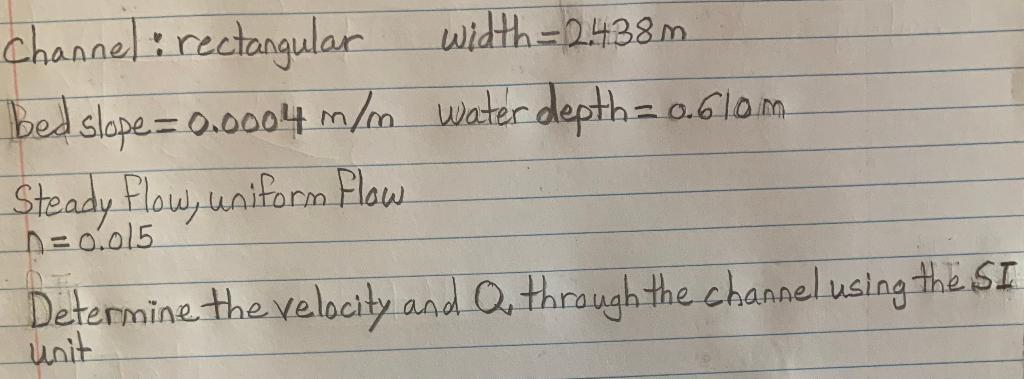 Channel: rectangular width = 2.438 m
Bed slope = 0.0004 m/m water depth = 0.610 m
Steady flow, uniform flow
n = 0.015
Determine the velocity and Q, through the channel using the SI
unit